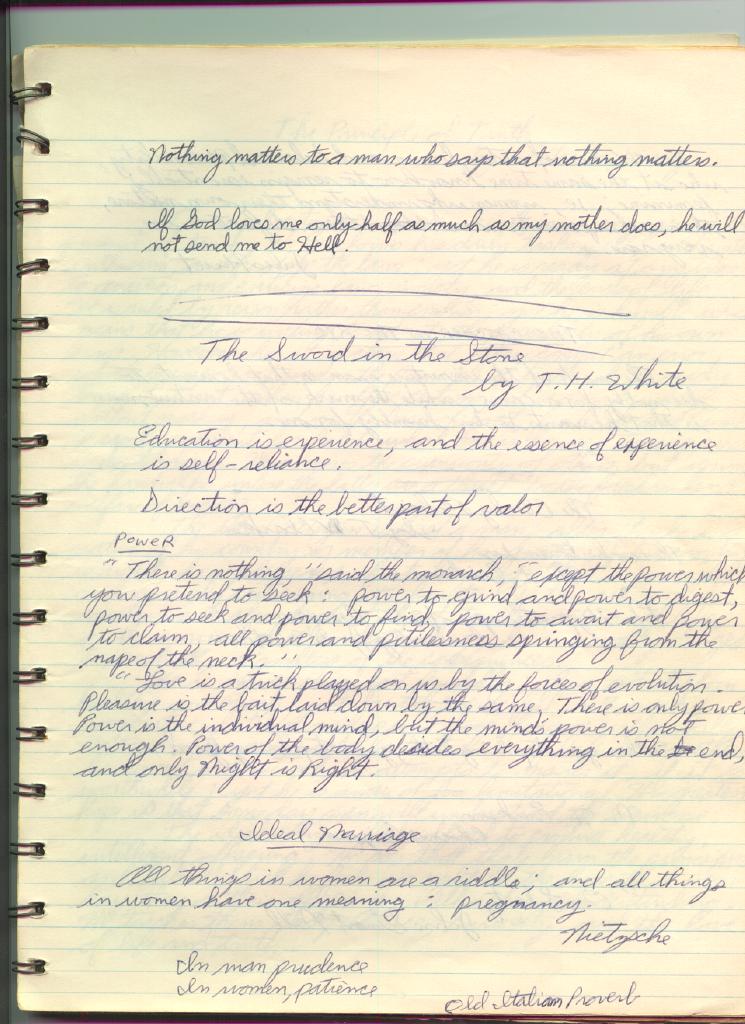 Nothing matters to a man who says that nothing matters.
If God loves me only half as much as my mother does, he will
not send me to Hell.
The Sword in the Stone
by T.H. White
Education is experience, and the essence of experience
is self-reliance.
Direction is the better part of valor
Power
"There is nothing," said the monarch, "except the power which
you pretend to seek: power to grind and power to digest,
power to seek and power to find, power to await and power
to claim, all power and pitilessness springing from the
nape of the neck."
"Love is a trick played on us by the forces of evolution.
Pleasure is the bait laid down by the same. There is only power.
Power is the individual mind, but the mind's power is not
enough. Power of the body decides everything in the end,
and only Might is Right.
Ideal Marriage
All things in women are a riddle; and all things
in women have one meaning: pregnancy.
Nietzsche
In man prudence
In women, patience
Old Italian Proverb